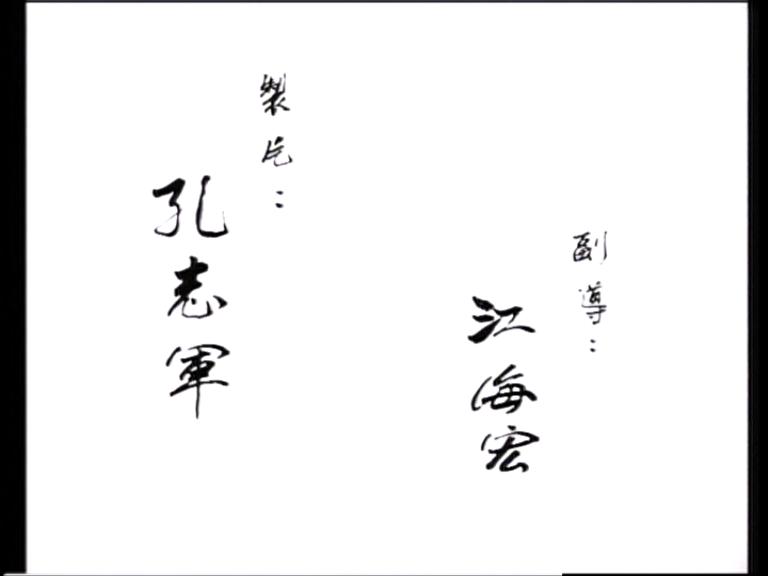 副導：
江海宏
製片：
孔志軍